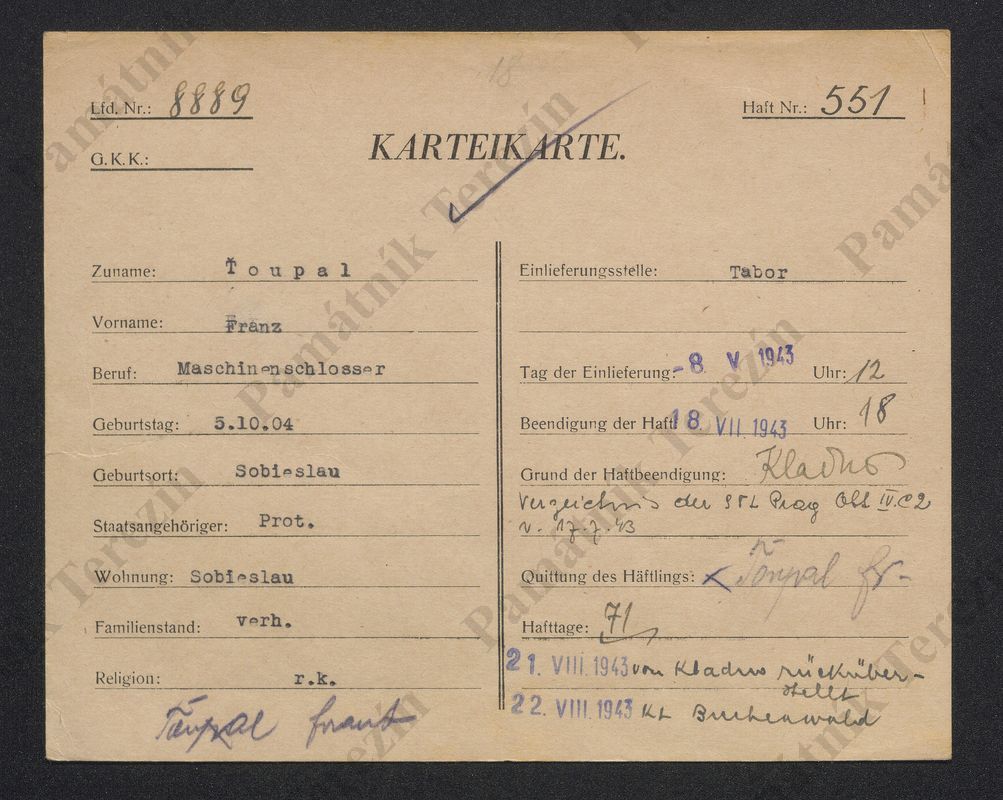 Lfd. Nr.: 8889
Haft Nr.: 551
18
G.K.K.:
KARTEIKARTE.
Zuname: Ťoupal
Vorname: Franz
Beruf: Maschinenschlosser
Geburtstag: 5.10.04
Geburtsort: Sobieslau
Staatsangehöriger: Prot.
Wohnung: Sobieslau
Familienstand: verh.
Religion: r.k.
Einlieferungsstelle: Tabor
Tag der Einlieferung: -8 V 1943 Uhr: 12
Beendigung der Haft: 18. VII 1943 Uhr: 18
Grund der Haftbeendigung: Kladno
Verzeichnis der STL Prag IV.C2
v. 17.7.43
Quittung des Häftlings: Ťoupal Fr.
Hafttage: 71
21. VIII. 1943 von Kladno rücküber-
stellt
22. VIII. 1943 KL Buchenwald
Ťoupal
Památník Terezín
Památník Terezín
Památník Terezín
Památník Terezín